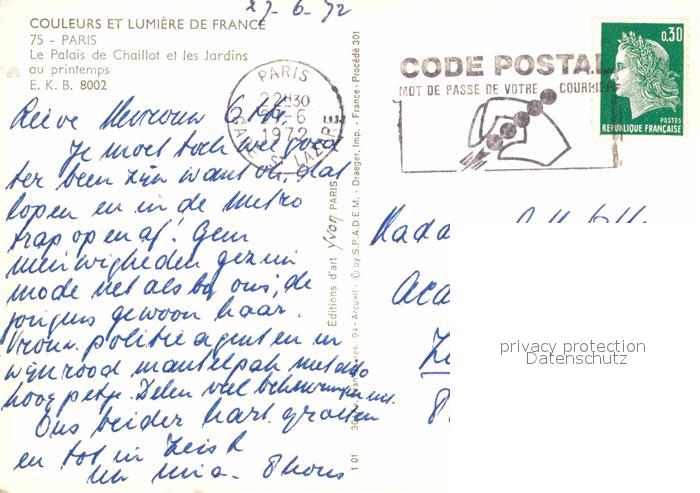 27-6-72
COULEURS ET LUMIÈRE DE FRANCE
75 - PARIS
Le Palais de Chaillot et les Jardins
au printemps
E. K. B. 8002
PARIS
22H30
-6
1972
GARE ST LAZARE
CODE POSTAL
MOT DE PASSE DE VOTRE COURRIER
0,30
POSTES
REPUBLIQUE FRANÇAISE
Lieve Mevrouw
Je moet toch wel goed
ter been zijn want oh, dat
lopen en in de Metro
trap op en af! Geen
nieuwigheden gezien
mode net als bij ons, de
jongens gewoon haar.
Vrouw. politie agenten in
wijnrood mantelpak met
hoog petje. Zelen veel
Ons beider hart. groeten
en tot in Zeist
Mia.
Editions d'art yvon PARIS
© by S.P.A.D.E.M. - Draeger, Imp. - France - Procédé 301
94 - Arcueil
1 01
Mada
Aca
privacy protection
Datenschutz